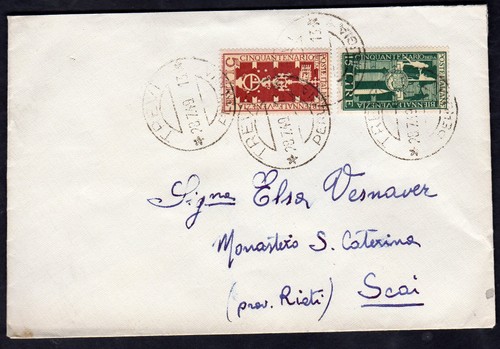 5 LIRE CINQUANTENARIO
BIENNALE DI VENEZIA
15 LIRE CINQUANTENARIO
BIENNALE DI VENEZIA
TREVI
28.7.49
Signa Elsa Vesnaver
Monastero S. Caterina
(prov. Rieti) Scai